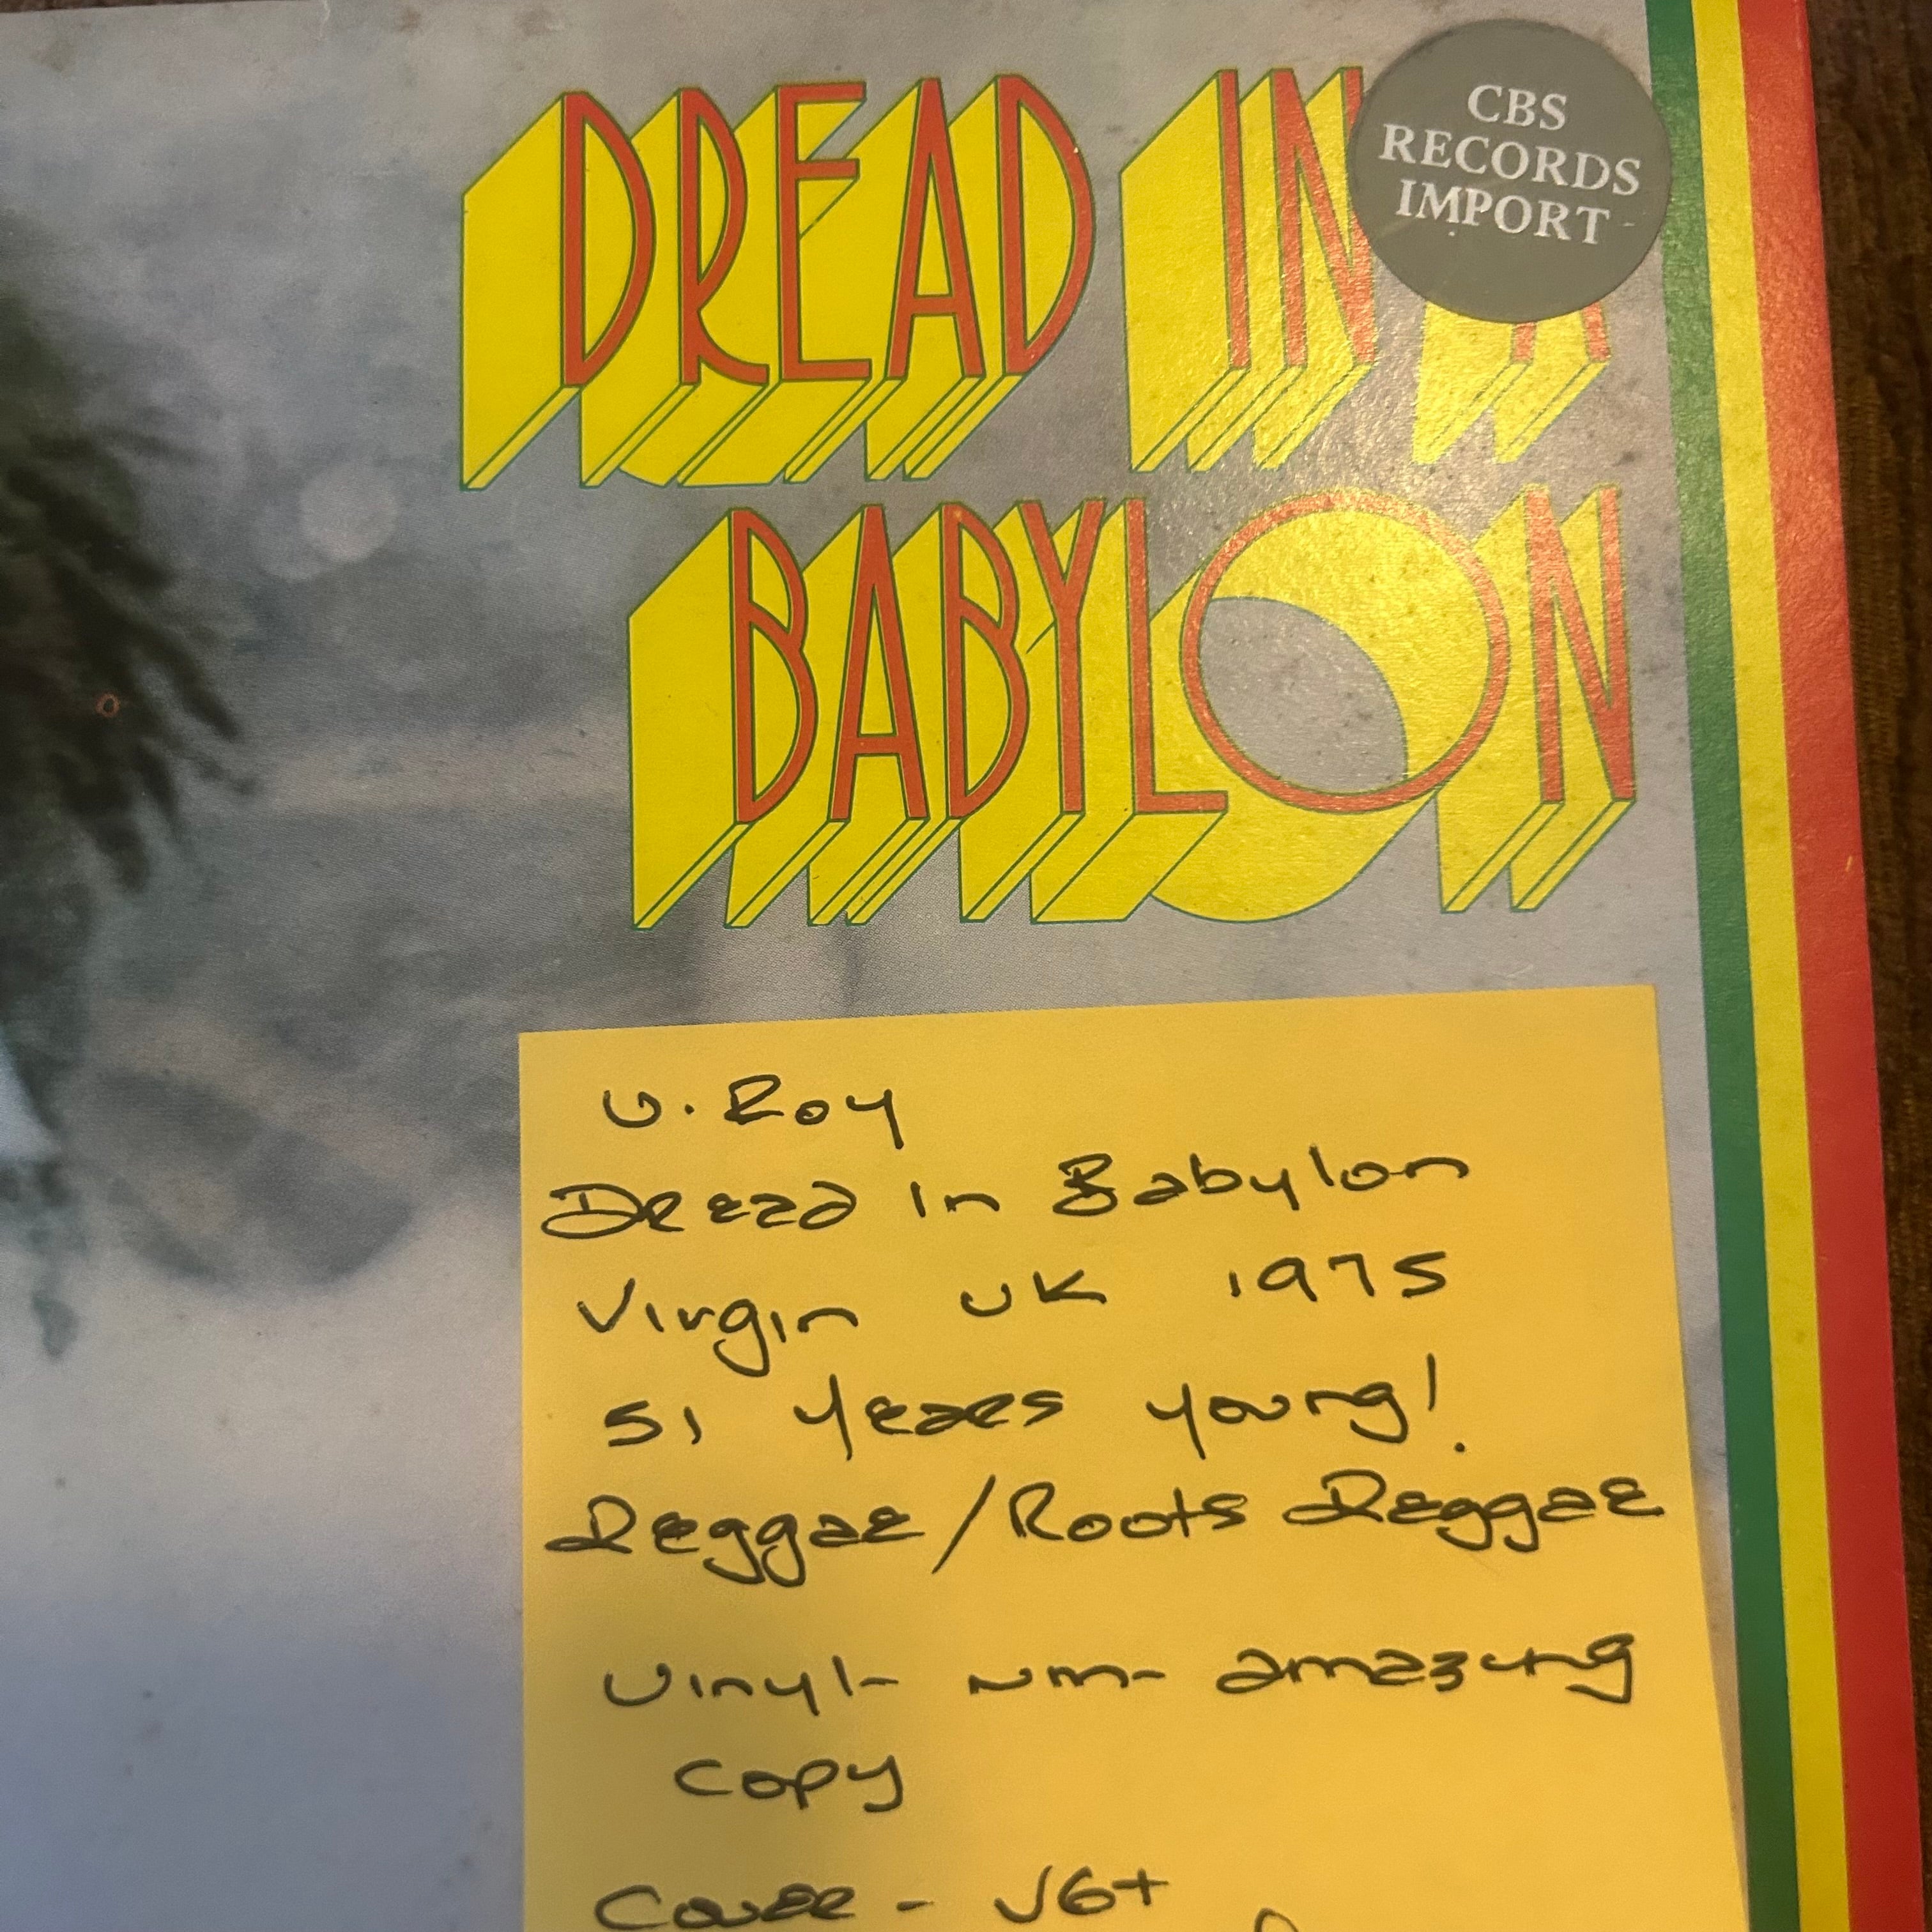 DREAD IN A
CBS
RECORDS
IMPORT
BABYLON
U. Roy
Dread in Babylon
Virgin UK 1975
51 years young!
Reggae/Roots Reggae
Vinyl- NM- amazing
copy
Cover - VG+